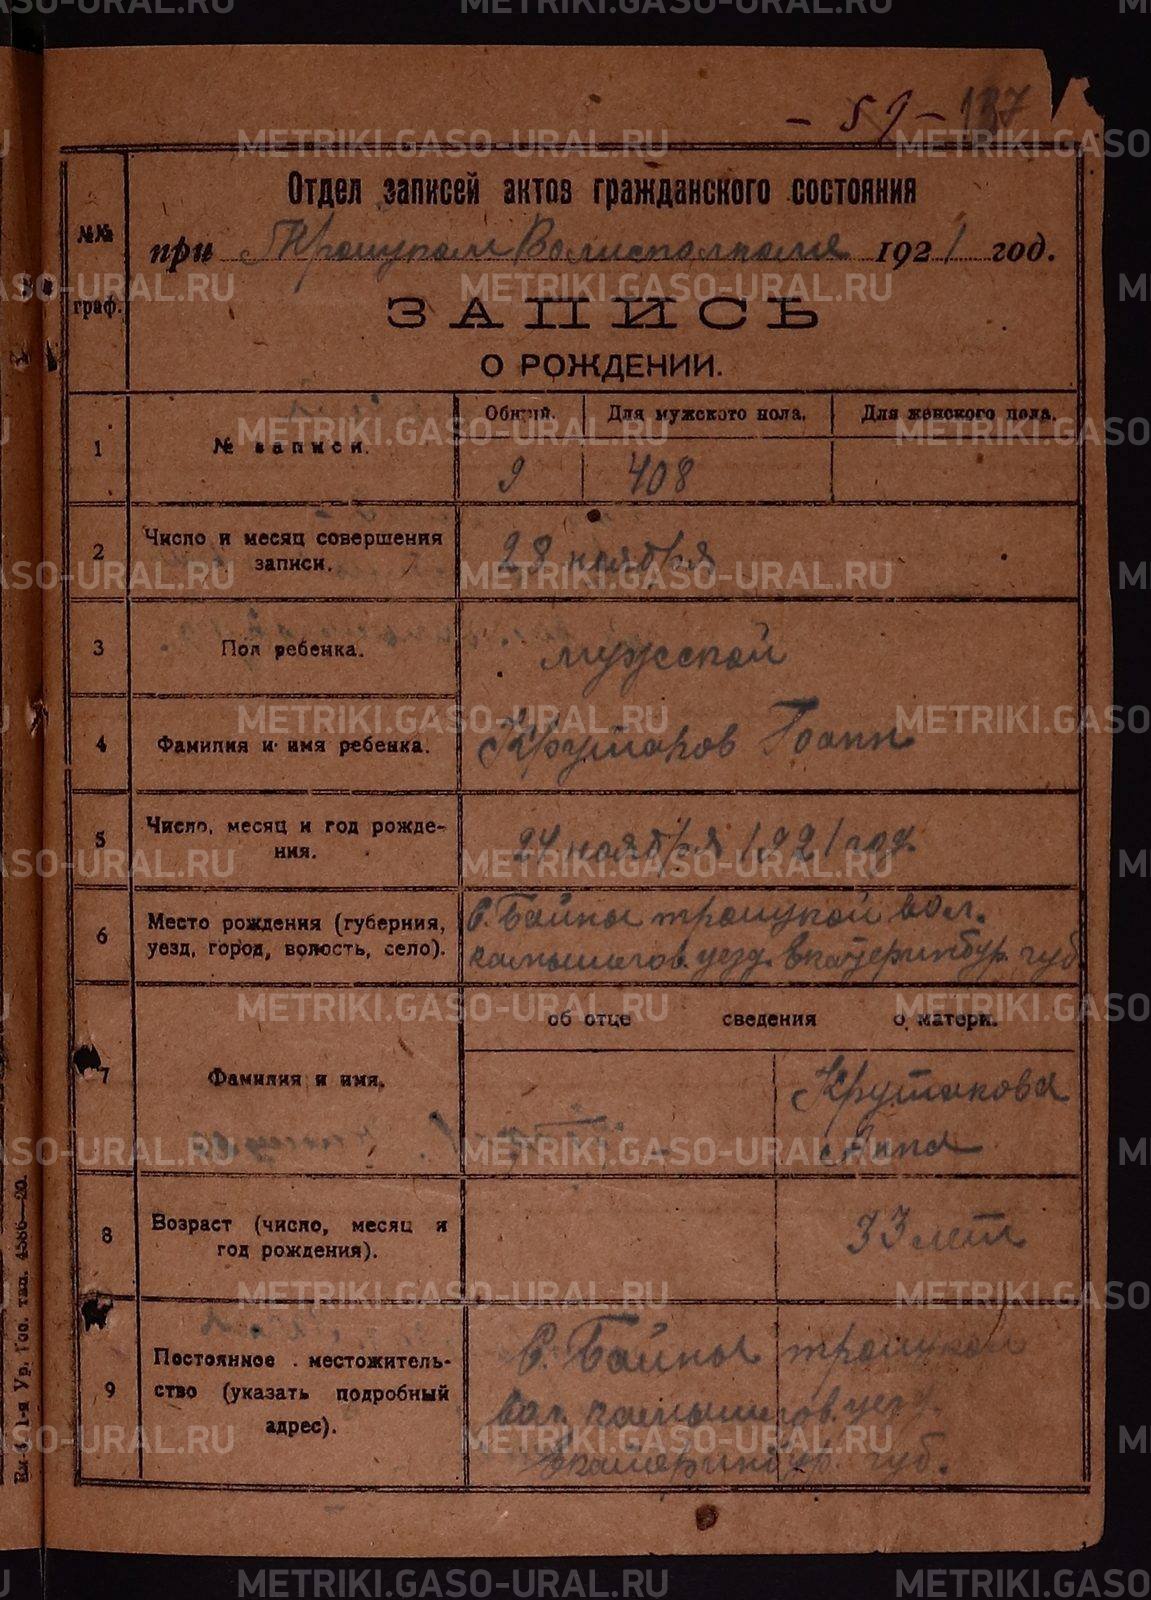 - 59 - 137
Отдел записей актов гражданского состояния
№№ граф.
при Троицком Волисполкоме 1921 год.
ЗАПИСЬ
О РОЖДЕНИИ.
Общий. Для мужского пола. Для женского пола.
1 № записи. 9 408
2 Число и месяц совершения записи. 28 ноября
3 Пол ребенка. мужской
4 Фамилия и имя ребенка. Крутаков Іоанн
5 Число, месяц и год рождения. 24 ноября 1921 год.
6 Место рождения (губерния, уезд, город, волость, село). С. Байны троицкой вол.
камышлов. уезд. Екатеринбур. губ.
об отце сведения о матери.
7 Фамилия и имя. Крутакова
Анна
8 Возраст (число, месяц и год рождения). 33 лет
9 Постоянное местожительство (указать подробный адрес). С. Байны троицкой
вол. камышлов. уезд.
Екатеринбур. губ.
1-я Ур. Гос. тип. 4586—20.
METRIKI.GASO-URAL.RU